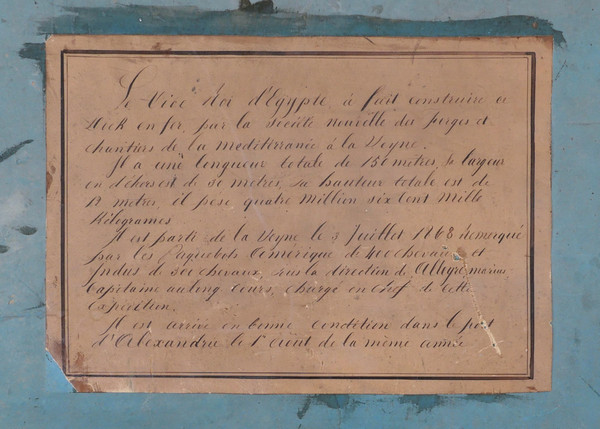 Le Vice Roi d'Egypte à fait construire ce
Dock en fer, par la Societé nouvelle des forges et
chantiers de la mediterranée à la Seyne.
Il a une longueur totale de 150 metres, sa largeur
en dehors est de 30 metres, sa hauteur totale est de
12 metres, il pese quatre million six Cent Mille
Kilogrames
Il est parti de la Seyne le 3 Juillet 1868 Remorqué
par les Paquebots Amérique de 400 chevaux et
Indus de 300 chevaux, sous la direction de Allegre marius
Capitaine au long Cours, chargé en Chef de Cette
Expedition.
Il est arrivé en bonne condition dans le port
d'Alexandrie le 1er Août de la même année